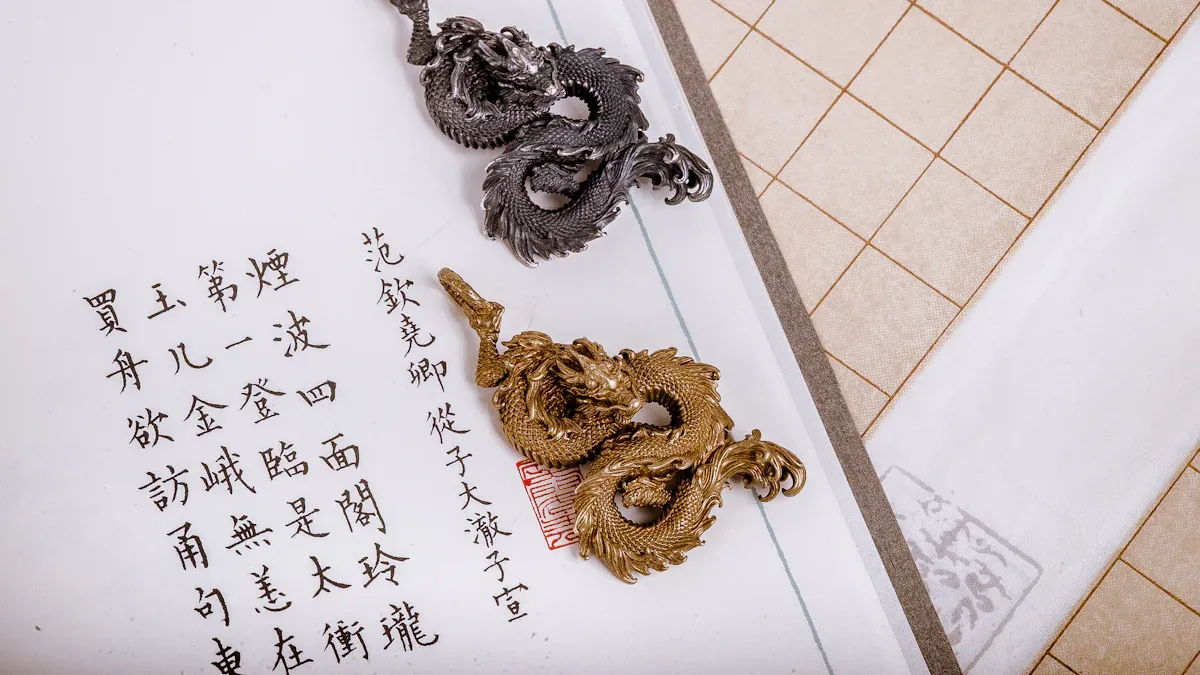 范欽堯卿 從子大澈子宣
煙波四面閣玲瓏
第一登臨是太衝
玉几金峨無恙在
買舟欲訪甬句東